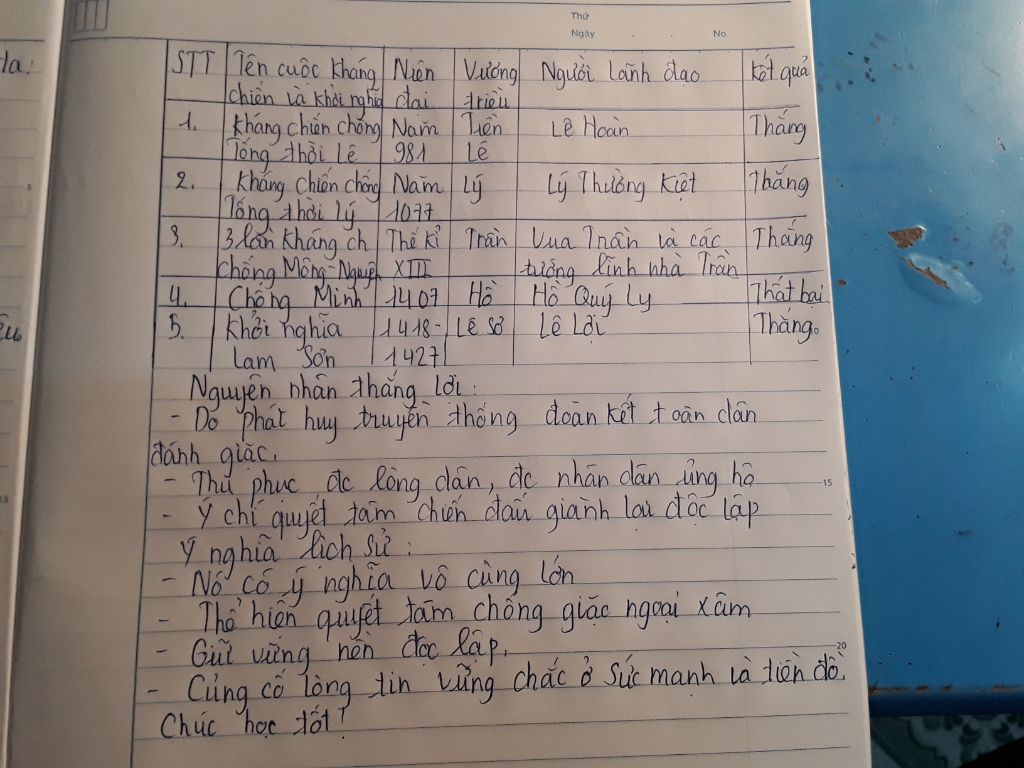 Thứ
Ngày . . No.
la:
STT Tên cuộc kháng Niên Vương Người lãnh đạo kết quả
chiến và khởi nghĩa đại triều
1. Kháng chiến chống Năm Tiền Lê Hoàn Thắng
Tống thời Lê 981 Lê
2. Kháng chiến chống Năm Lý Lý Thường Kiệt Thắng
Tống thời lý 1077
3. 3 lần kháng ch Thế kỉ Trần Vua Trần và các Thắng
chống Mông-Nguyên XIII tướng lĩnh nhà Trần
4. Chống Minh 1407 Hồ Hồ Quý Ly Thất bại
5. Khởi nghĩa 1418- Lê sơ Lê Lợi Thắng.
Lam Sơn 1427
Nguyên nhân thắng lợi:
- Do phát huy truyền thống đoàn kết toàn dân
đánh giặc.
- Thu phục đc lòng dân, đc nhân dân ủng hộ
15
- Ý chí quyết tâm chiến đấu giành lại độc lập
Ý nghĩa lịch sử:
- Nó có ý nghĩa vô cùng lớn
- Thể hiện quyết tâm chống giặc ngoại xâm
- Giữ vững nền độc lập.
20
- Củng cố lòng tin vững chắc ở sức mạnh và tiền đồ.
Chúc học tốt!